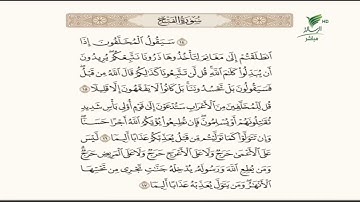 سُورَةُ الفَتْحِ
HD
الرسالة
مباشر
١٤ سَيَقُولُ ٱلْمُخَلَّفُونَ إِذَا
ٱنطَلَقْتُمْ إِلَىٰ مَغَانِمَ لِتَأْخُذُوهَا ذَرُونَا نَتَّبِعْكُمْ يُرِيدُونَ
أَن يُبَدِّلُوا۟ كَلَٰمَ ٱللَّهِ قُل لَّن تَتَّبِعُونَا كَذَٰلِكُمْ قَالَ ٱللَّهُ مِن قَبْلُ
فَسَيَقُولُونَ بَلْ تَحْسُدُونَنَا بَلْ كَانُوا۟ لَا يَفْقَهُونَ إِلَّا قَلِيلًا ١٥
قُل لِّلْمُخَلَّفِينَ مِنَ ٱلْأَعْرَابِ سَتُدْعَوْنَ إِلَىٰ قَوْمٍ أُو۟لِى بَأْسٍ شَدِيدٍ
تُقَٰتِلُونَهُمْ أَوْ يُسْلِمُونَ فَإِن تُطِيعُوا۟ يُؤْتِكُمُ ٱللَّهُ أَجْرًا حَسَنًا
وَإِن تَتَوَلَّوْا۟ كَمَا تَوَلَّيْتُم مِّن قَبْلُ يُعَذِّبْكُمْ عَذَابًا أَلِيمًا ١٦ لَّيْسَ
عَلَى ٱلْأَعْمَىٰ حَرَجٌ وَلَا عَلَى ٱلْأَعْرَجِ حَرَجٌ وَلَا عَلَى ٱلْمَرِيضِ حَرَجٌ
وَمَن يُطِعِ ٱللَّهَ وَرَسُولَهُۥ يُدْخِلْهُ جَنَّٰتٍ تَجْرِى مِن تَحْتِهَا
ٱلْأَنْهَٰرُ وَمَن يَتَوَلَّ يُعَذِّبْهُ عَذَابًا أَلِيمًا ١٧